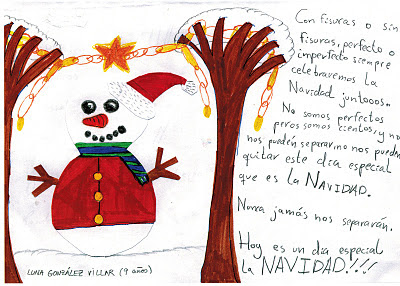 Con fisuras o sin
fisuras, perfecto o
imperfecto siempre
celebraremos la
Navidad juntooos.
No somos perfectos
peros somos cientos, y no
nos pueden separar, no nos pueden
quitar este día especial
que es la NAVIDAD.
Nunca jamás nos separarán.
Hoy es un día especial
la NAVIDAD!!!!
LUNA GONZÁLEZ VILLAR (9 años)